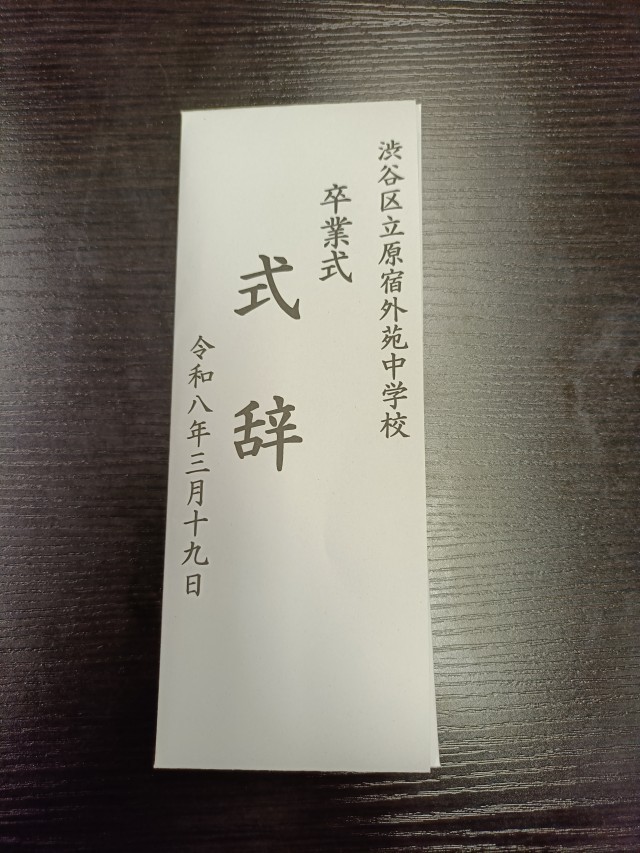 渋谷区立原宿外苑中学校
卒業式
式辞
令和八年三月十九日